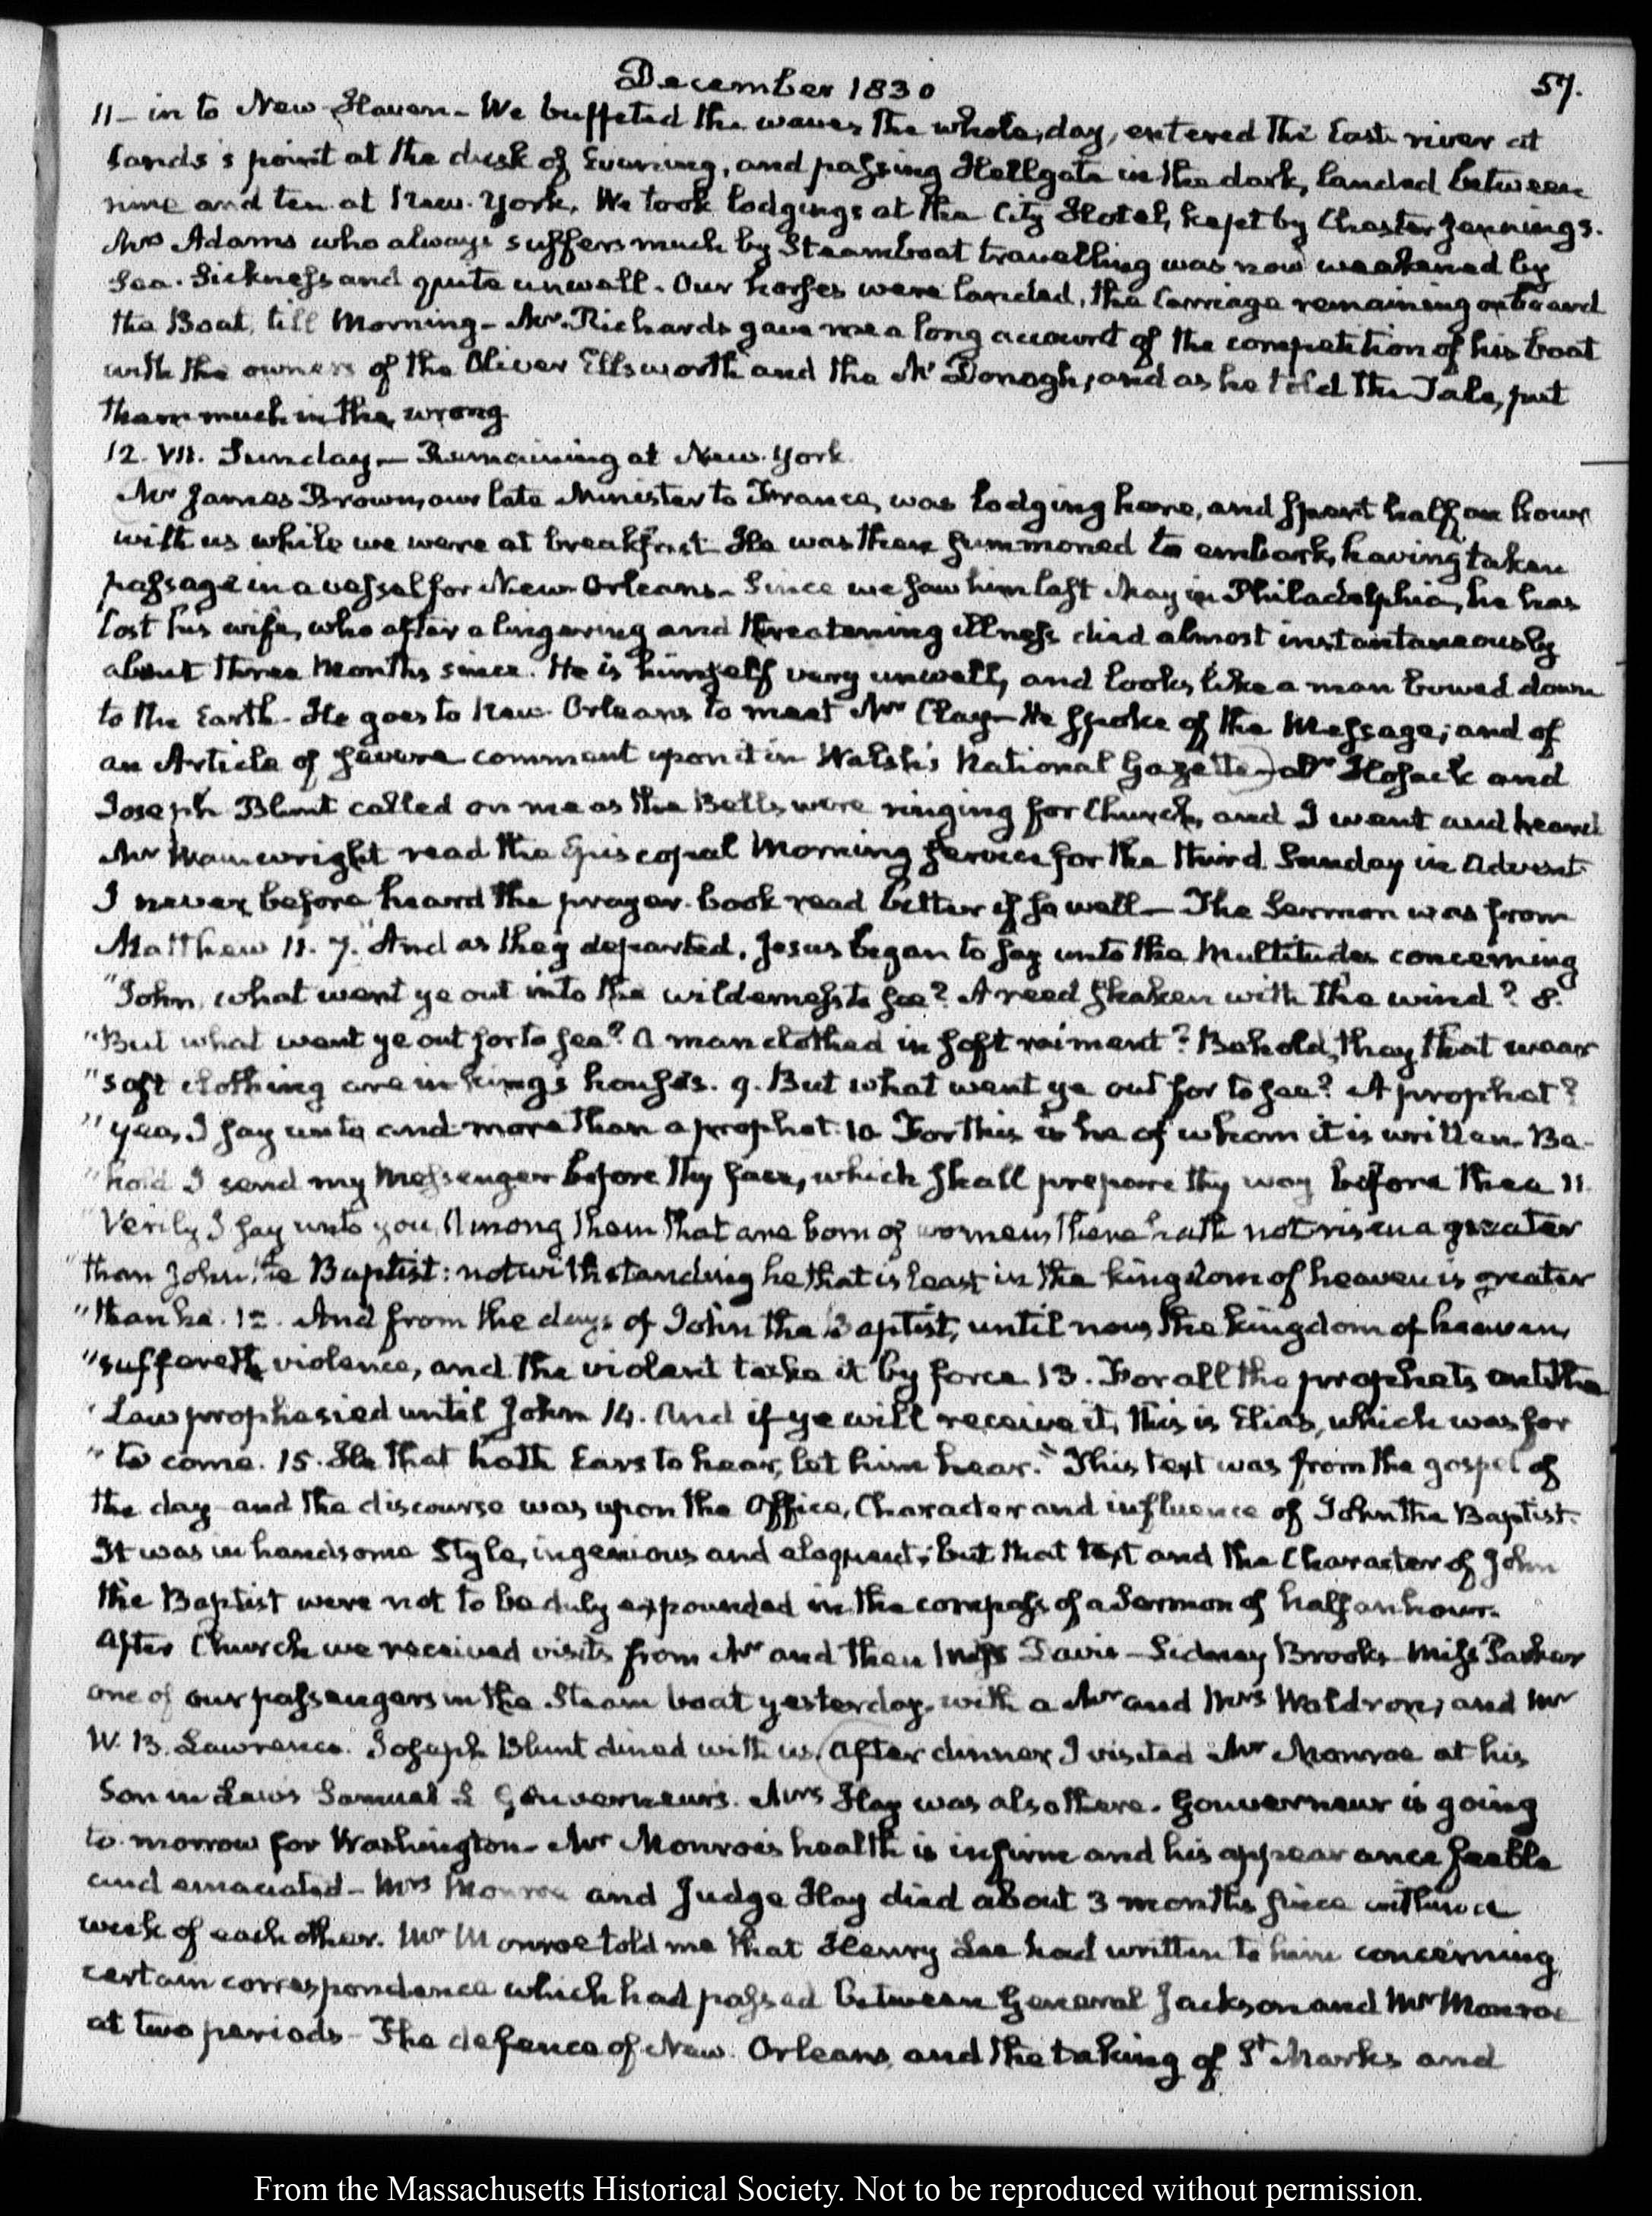 December 1830
57.
11– in to New-Haven– We buffeted the waves the whole, day, entered the East river at
Sands's point at the dusk of Evening, and passing Hellgate in the dark, landed between
nine and ten at New-York. We took lodgings at the City Hotel, kept by Chester Jennings.
Mrs Adams who always suffers much by Steamboat travelling was now weakened by
Sea-Sickness and quite unwell. Our horses were landed, the Carriage remaining on board
the Boat, till Morning– Mr Richards gave me a long account of the competition of his boat
with the owners of the Oliver Ellsworth and the Mc Donogh, and as he told the Tale, put
them much in the wrong
12. VII. Sunday– Remaining at New-York.
Mr James Brown, our late Minister to France, was lodging here, and spent half an hour
with us while we were at breakfast– He was then summoned to embark, having taken
passage in a vessel for New-Orleans– Since we saw him last May in Philadelphia, he has
lost his wife, who after a lingering and threatening illness died almost instantaneously
about three Months since. He is himself very unwell, and looks like a man bowed down
to the Earth– He goes to New-Orleans to meet Mr Clay– He spoke of the Message; and of
an Article of severe comment upon it in Walsh's National Gazette–) Dr Hosack and
Joseph Blunt called on me as the Bells were ringing for Church, and I went and heard
Mr Wainwright read the Episcopal Morning service for the third Sunday in Advent
I never before heard the prayer-book read better if so well– The Sermon was from
Matthew 11. 7. "And as they departed, Jesus began to say unto the Multitudes concerning
"John, what went ye out into the wilderness to see? A reed shaken with the wind? 8.
"But what went ye out for to see? A man clothed in soft raiment? Behold, they that wear
"soft clothing are in kings houses. 9. But what went ye out for to see? A prophet?
"yea, I say unto and more than a prophet. 10 For this is he of whom it is written. Be-
"hold I send my Messenger before thy face, which shall prepare thy way before thee 11.
"Verily I say unto you, Among them that are born of women there hath not risen a greater
"than John the Baptist: notwithstanding he that is least in the kingdom of heaven is greater
"than he. 12. And from the days of John the Baptist, until now, the kingdom of heaven,
"suffereth violence, and the violent take it by force 13. For all the prophets and the
"Law prophesied until John 14. And if ye will receive it, this is Elias, which was for
"to come. 15. He that hath Ears to hear, let him hear." This text was from the gospel of
the day– and the discourse was upon the Office, Character and influence of John the Baptist.
It was in handsome Style, ingenious and eloquent; but that text and the Character of John
the Baptist were not to be duly expounded in the compass of a Sermon of half an hour.
After Church we received visits from Mr and then Davis– Sidney Brooks– Miss Parker
one of our passengers in the Steam boat yesterday, with a Mr and Mrs Waldron; and Mr
W. B. Lawrence. Joseph Blunt dined with us. (After dinner I visited Mr Monroe at his
Son in Law's Samuel L Gouverneurs. Mrs Hay was also there. Gouverneur is going
to-morrow for Washington– Mr Monroe's health is infirm and his appearance feeble
and emaciated– Mrs Monroe and Judge Hay died about 3 months since within a
week of each other. Mr Monroe told me that Henry Lee had written to him concerning
certain correspondence which had passed between General Jackson and Mr Monroe
at two periods– The defence of New-Orleans, and the taking of St Marks and
From the Massachusetts Historical Society. Not to be reproduced without permission.